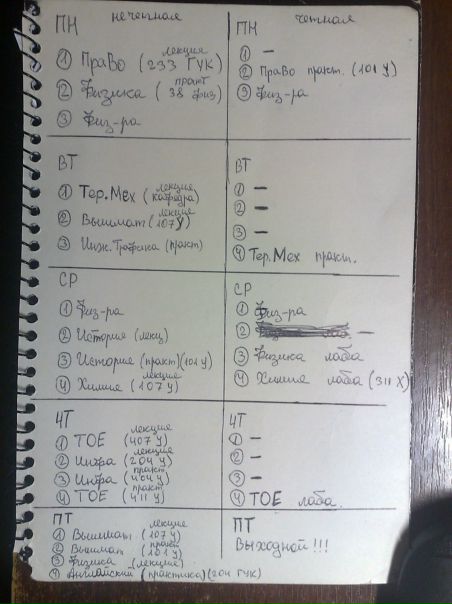 ПН нечетная
① Право (лекция 233 ГУК)
② Физика (практ 38 физ)
③ Физ-ра
ПН четная
① —
② Право практ. (101 У)
③ Физ-ра
ВТ
① Тер.Мех (лекция кафедра)
② Вышмат (лекция 107 У)
③ Инж. Графика (практ)
ВТ
① —
② —
③ —
④ Тер.Мех практ.
СР
① Физ-ра
② История (лекц)
③ История (практ) (101 У)
④ Химия (лекция 107 У)
СР
① Физ-ра
② —
③ Физика лаба
④ Химия лаба (311 Х)
ЧТ
① ТОЕ (лекция 407 У)
② Инфа (лекция 204 У)
③ Инфа (практ 404 У)
④ ТОЕ (практ 411 У)
ЧТ
① —
② —
③ —
④ ТОЕ лаба.
ПТ
① Вышмат (лекция 107 У)
② Вышмат (практ 101 У)
③ Физика (лекция)
④ Английский (практика) (204 ГУК)
ПТ
Выходной!!!